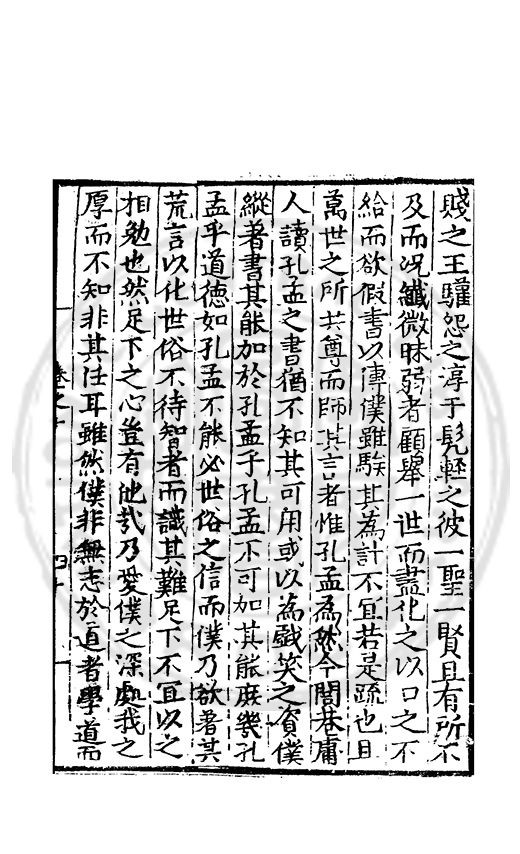 賤之王驩怨之淳于髡輕之彼一聖一賢且有所不
及而況纖微昧弱者顧舉一世而盡化之以口之不
給而欲假書以傳僕雖騃其為計不宜若是疏也且
萬世之所共尊而師其言者惟孔孟為然今閭巷庸
人讀孔孟之書猶不知其可用或以為戲笑之資僕
縱著書其能加於孔孟乎孔孟不可加其能庶幾孔
孟乎道德如孔孟不能必世俗之信而僕乃欲著其
荒言以化世俗不待智者而識其難足下不宜以之
相勉也然足下之心豈有他哉乃愛僕之深處我之
厚而不知非其任耳雖然僕非無志於道者學道而
卷之十
四十一